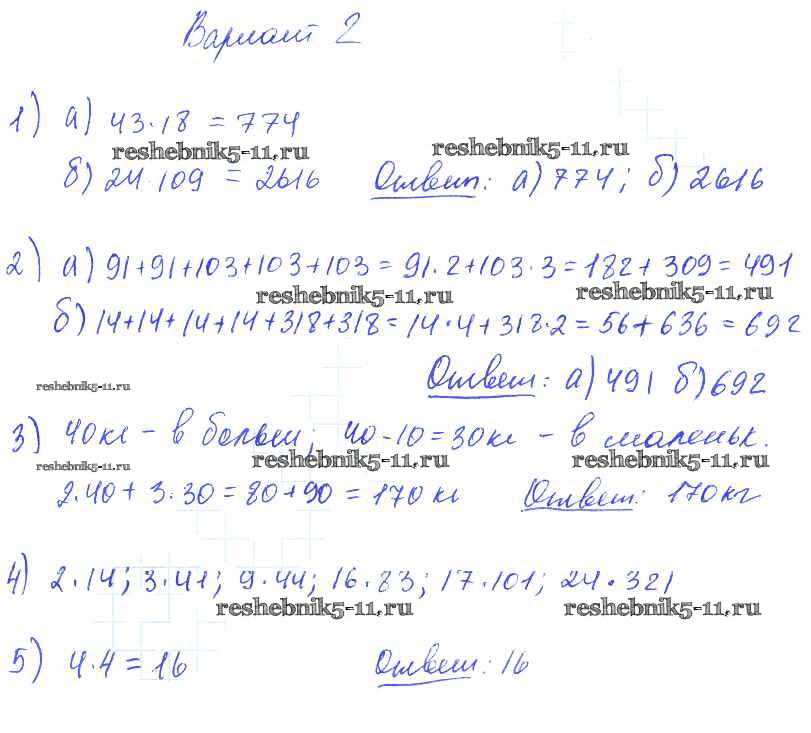 Вариант 2
1) а) 43·18 = 774
reshebnik5-11.ru
reshebnik5-11.ru
б) 24·109 = 2616 Ответ: а) 774; б) 2616
2) а) 91+91+103+103+103 = 91·2+103·3 = 182+309 = 491
reshebnik5-11.ru
reshebnik5-11.ru
б) 14+14+14+14+318+318 = 14·4+318·2 = 56+636 = 692
reshebnik5-11.ru
Ответ: а) 491 б) 692
3) 40кг – в больш; 40-10=30кг – в маленьк.
reshebnik5-11.ru
reshebnik5-11.ru
reshebnik5-11.ru
2·40 + 3·30 = 80+90 = 170 кг Ответ: 170кг
4) 2·14; 3·41; 9·44; 16·83; 17·101; 24·321
reshebnik5-11.ru
reshebnik5-11.ru
5) 4·4 = 16 Ответ: 16